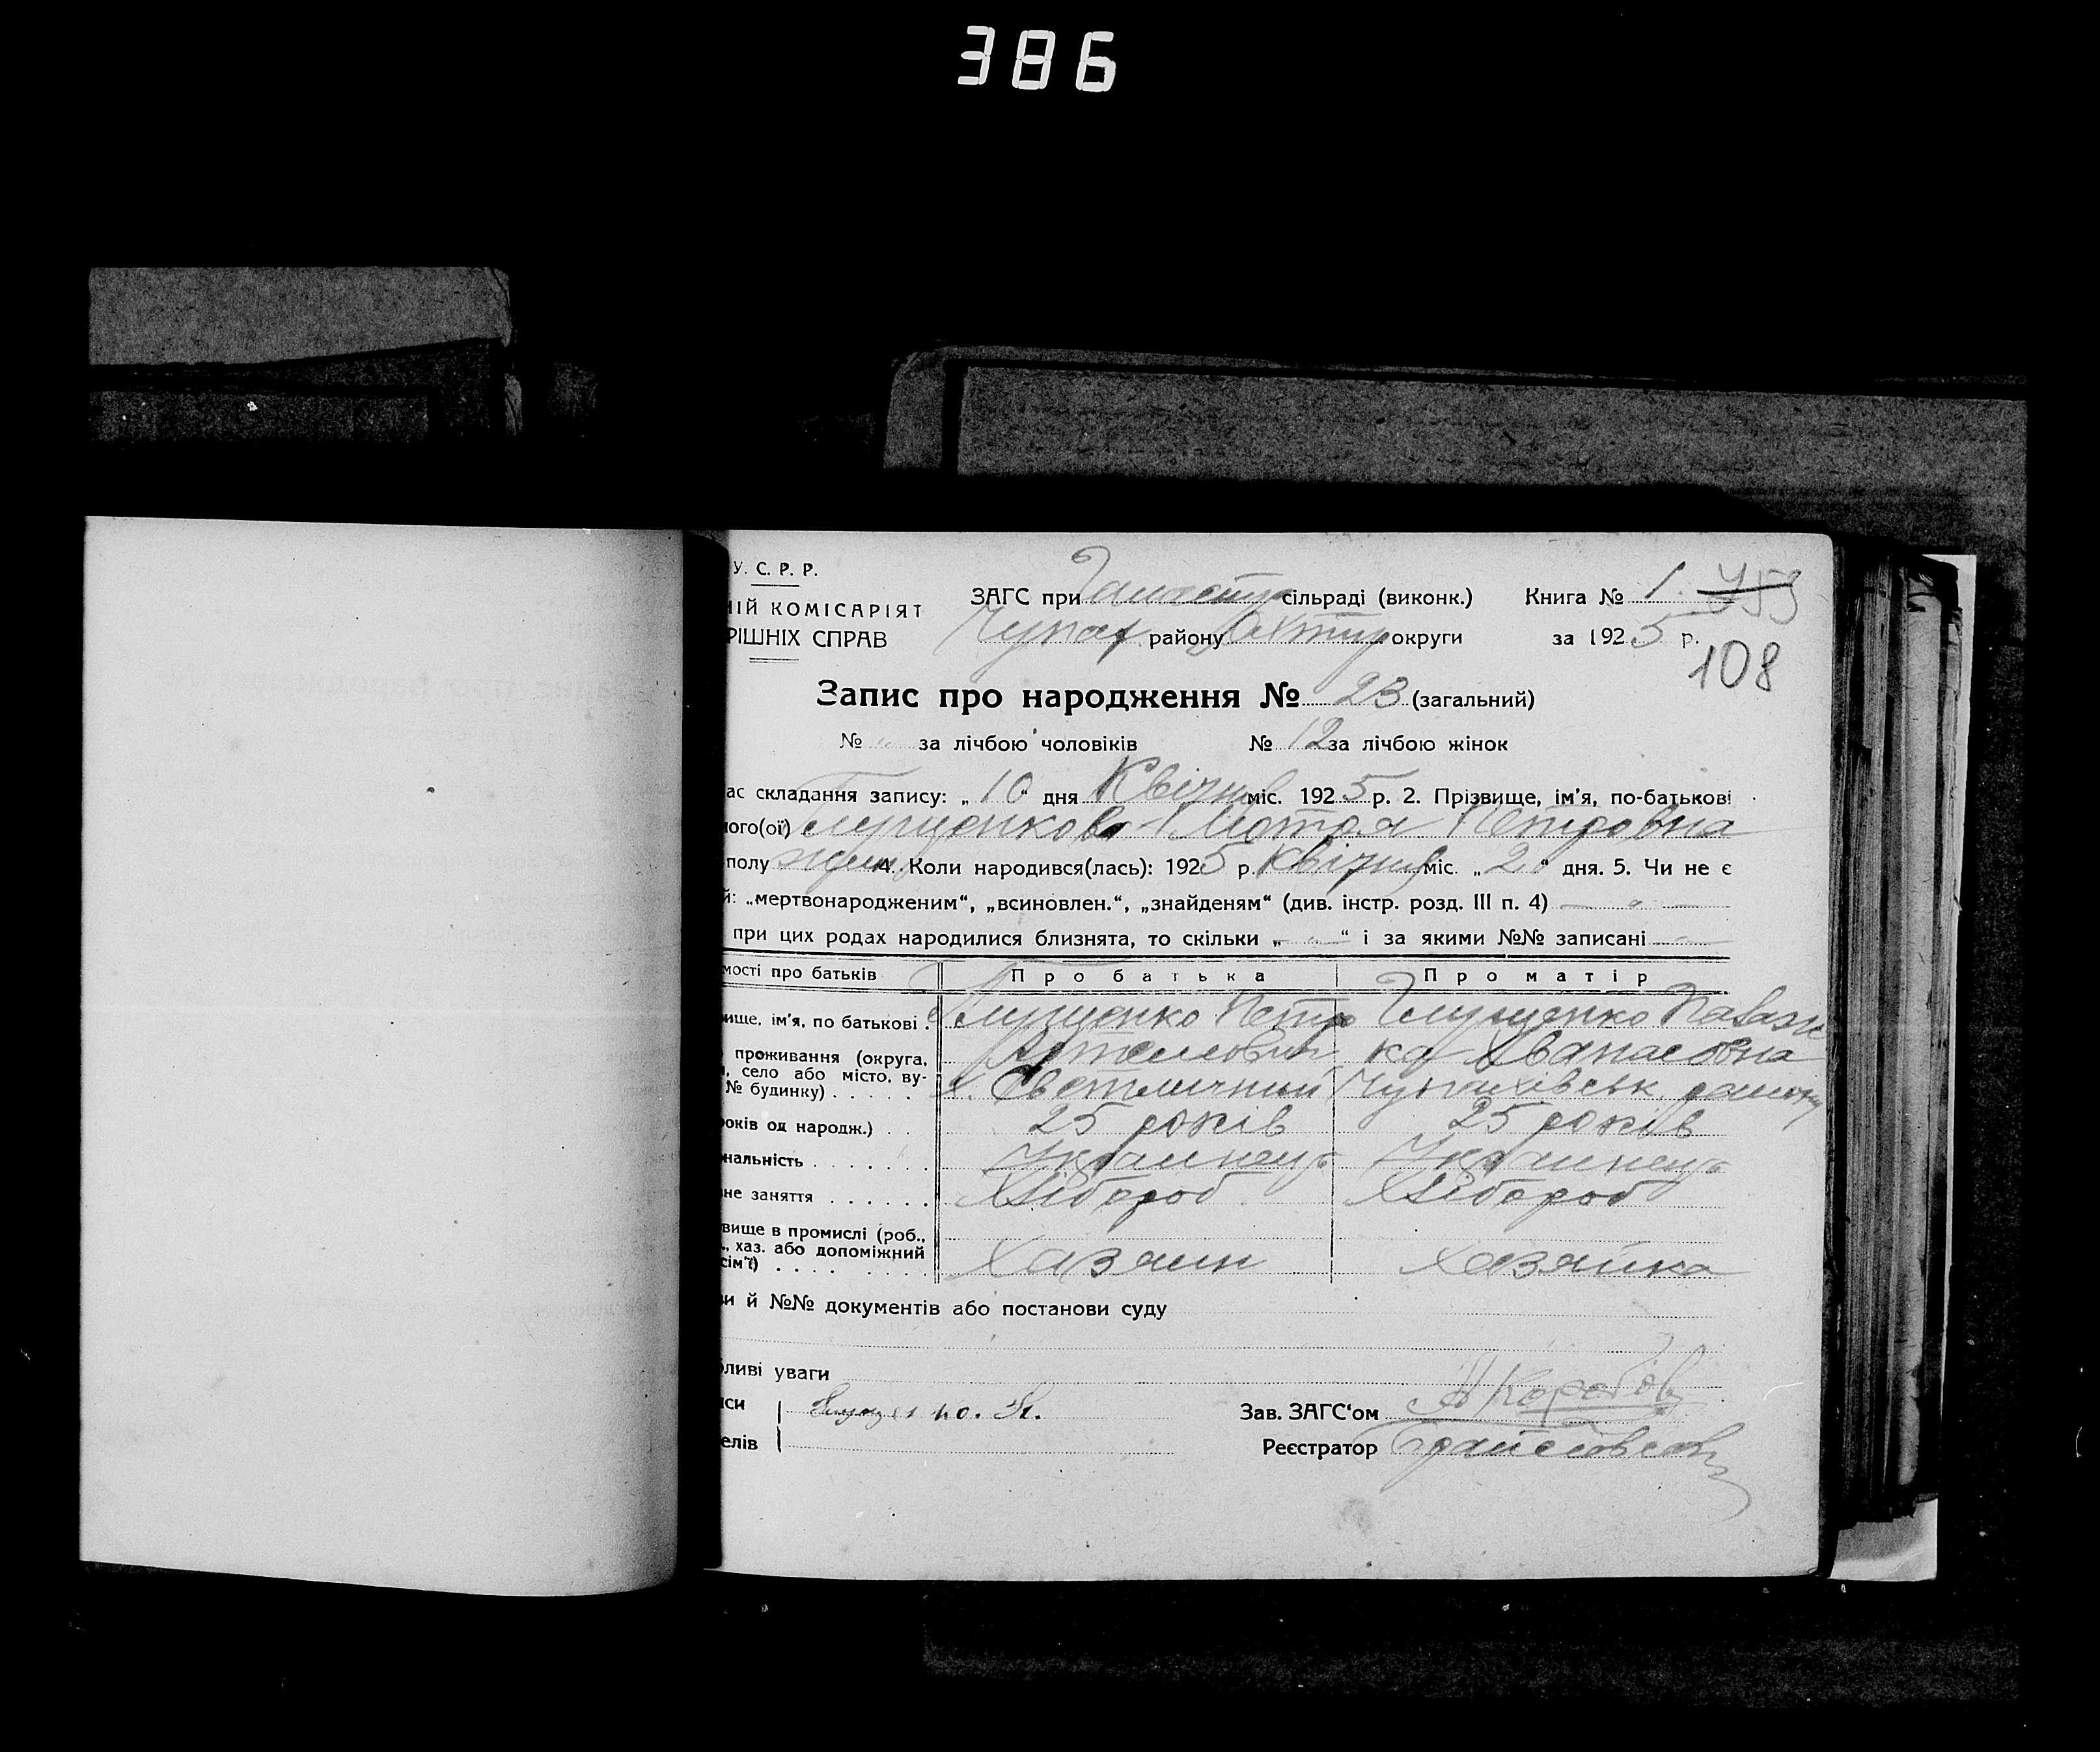 386
У. С. Р. Р.
НІЙ КОМІСАРІЯТ
РІШНІХ СПРАВ
ЗАГС при сільраді (виконк.) Книга № 1.
Чупах. району Охтир округи за 1925 р.
108
Запис про народження № 23 (загальний)
№ „ за лічбою чоловіків № 12 за лічбою жінок
ас складання запису: „10“ дня Квічня міс. 1925 р. 2. Прізвище, ім'я, по-батькові
ного(ої) Мотря Петровна
полу жін. 4. Коли народився(лась): 1925 р. Квічня міс. „2“ дня. 5. Чи не є
й: „мертвонародженим“, „всиновлен.“, „знайденям“ (див. інстр. розд. III п. 4) — „ —
при цих родах народилися близнята, то скільки „ — “ і за якими №№ записані —
мості про батьків Про батька Про матір
вище, ім'я, по батькові . Петро Глущенко Палажк
проживання (округа, Артемович ка Хванасовна
, село або місто, ву-
№ будинку) . . . . . х. Светличний Чупахівськ. району
років од народж.) . . 25 років 25 років
нальність . . . . . . . Украинець Украинець
вне заняття . . . . . . Хлібороб Хлібороб
вище в промислі (роб.,
., хаз. або допоміжний
сім'ї) . . . . . . . . Хазяин Хазяйка
ви й №№ документів або постанови суду
бливі уваги
иси Зав. ЗАГС'ом
елів Реєстратор